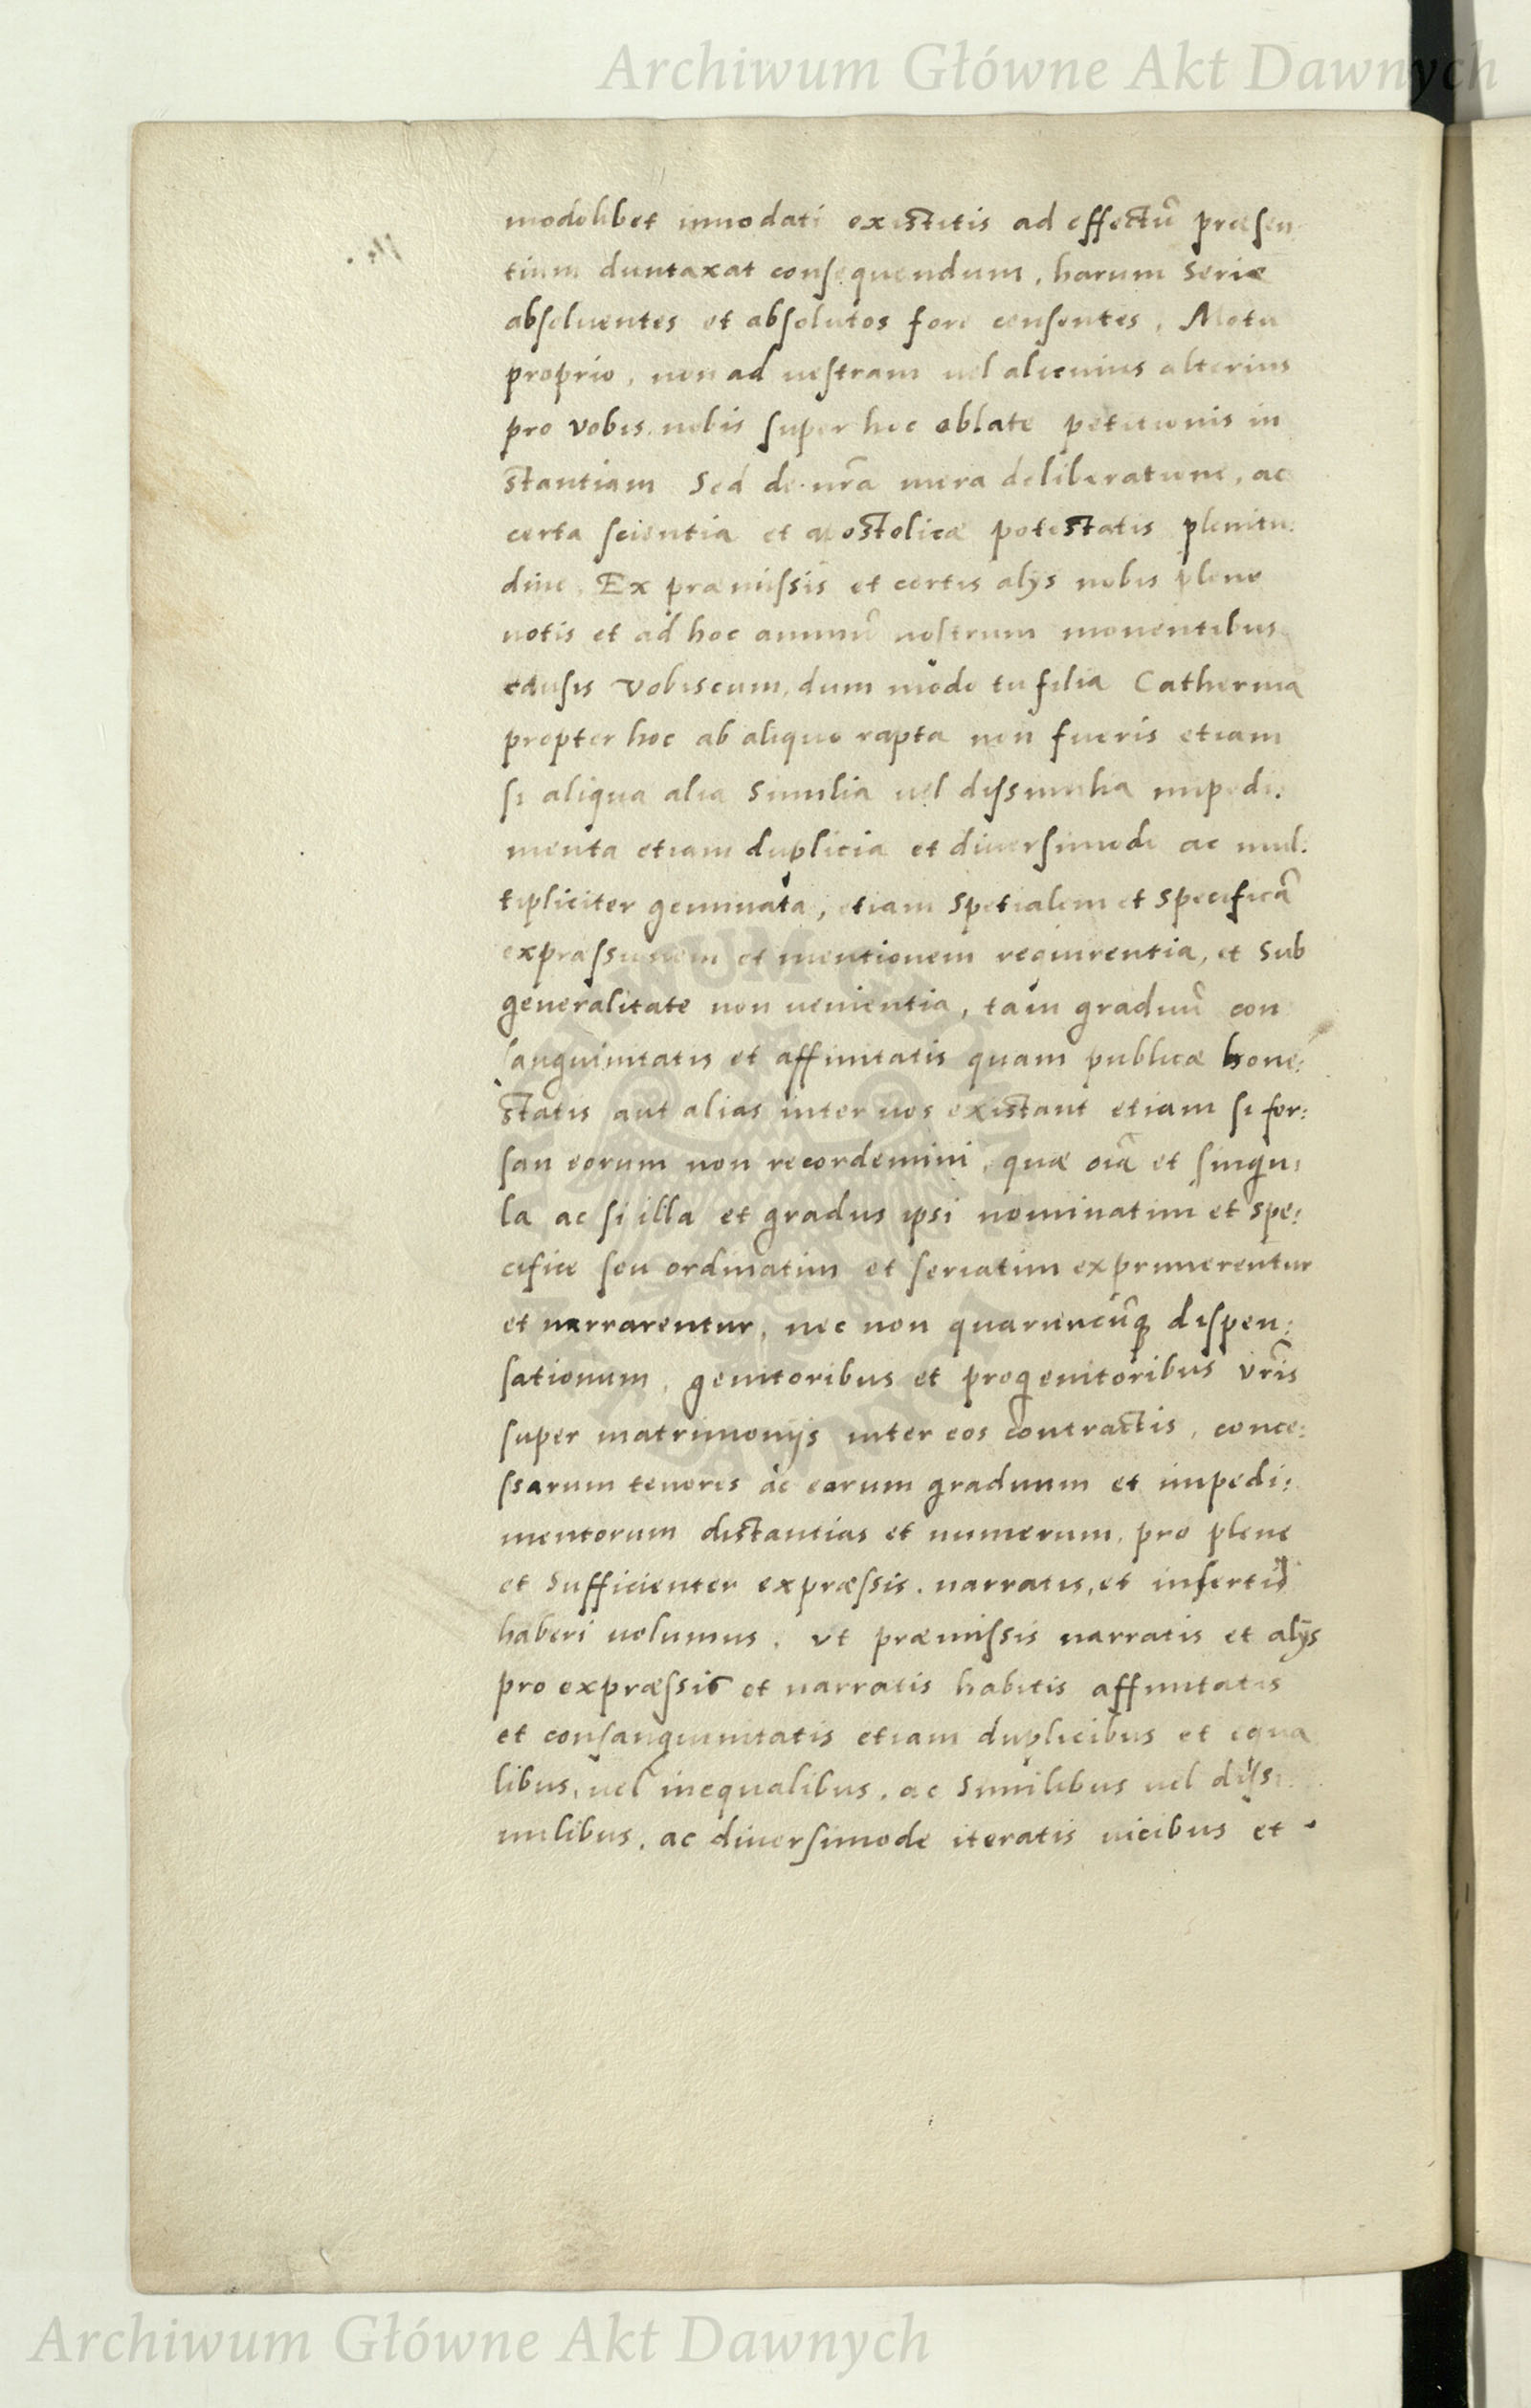 Archiwum Główne Akt Dawnych
modolibet innodati existitis ad effectũ præsen
tium duntaxat consequendum, harum serie
absoluentes et absolutos fore censentes, Motu
proprio, non ad uestram uel alicuius alterius
pro vobis nobis super hoc oblate petitionis in
stantiam Sed de nrã mera deliberatione, ac
certa scientia et apostolicæ potestatis plenitu:
dine, Ex præmissis et certis alijs nobis plene
notis et ad hoc animũ nostrum mouentibus
causis vobiscum, dum modo tu filia Catherina
propter hoc ab aliquo rapta non fueris etiam
si aliqua alia Similia uel dissimilia impedi:
menta etiam duplicia et diuersimode ac mul:
tipliciter geminata, etiam Spetialem et Specificã
expræssionem et mentionem requirentia, et Sub
generalitate non uenientia, tam graduũ con
sanguinitatis et affinitatis quam publicæ hone:
statis aut alias inter uos existant etiam si for:
san eorum non recordemini, quæ oiã et singu:
la ac si illa et gradus ipsi nominatim et spe:
cifice seu ordinatim et seriatim exprimerentur
et narrarentur, nec non quaruncũq dispen:
sationum, genitoribus et progenitoribus vrĩs
super matrimonijs inter eos contractis, conce:
ssarum tenores ac earum graduum et impedi:
mentorum distantias et numerum, pro plene
et Sufficienter expræssis, narratis, et insertis
haberi uolumus, vt præmissis narratis et alijs
pro expræssis et narratis habitis affinitatis
et consanguinitatis etiam duplicibus et equa
libus, uel inequalibus, ac Similibus uel dissi:
milibus, ac diuersimode iteratis uicibus et
Archiwum Główne Akt Dawnych